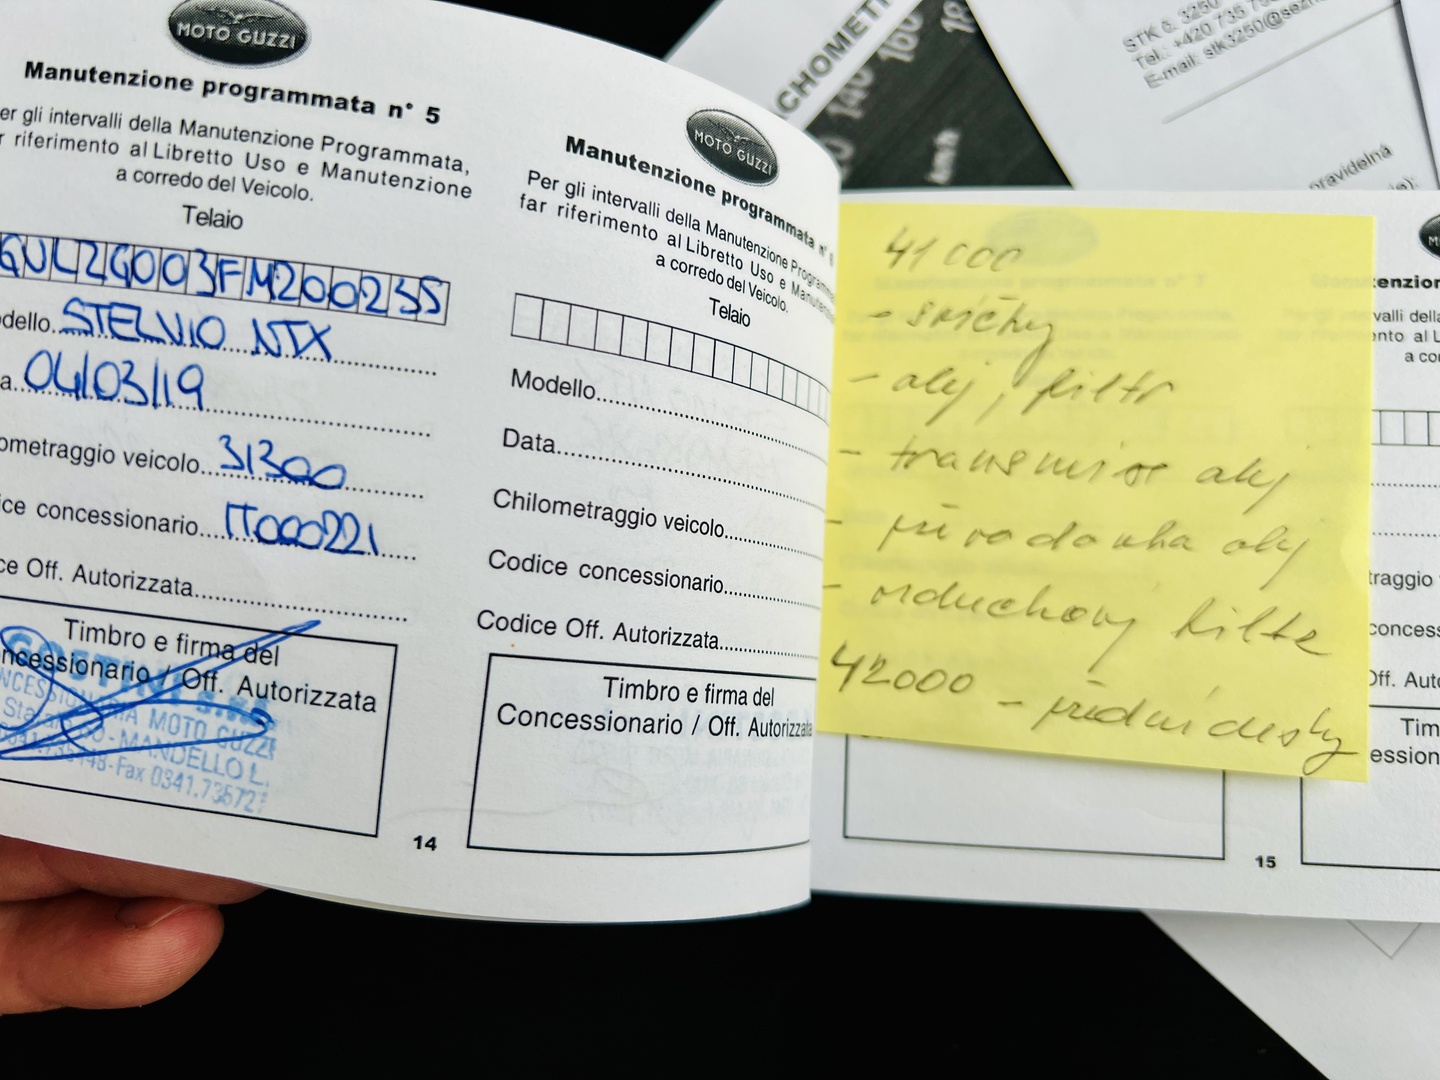 MOTO GUZZI
Manutenzione programmata n° 5
er gli intervalli della Manutenzione Programmata,
r riferimento al Libretto Uso e Manutenzione
a corredo del Veicolo.
Telaio
GULZG003FM200235
dello...STELVIO NTX
a...04/03/19
ometraggio veicolo...31300
ice concessionario...IT000221
ce Off. Autorizzata
Timbro e firma del
ncessionario / Off. Autorizzata
MOTO GUZZI
MANDELLO L.
Fax 0341.73572
14
MOTO GUZZI
Manutenzione programmata n°
Per gli intervalli della Manutenzione Programm
far riferimento al Libretto Uso e Manuten
a corredo del Veicolo.
Telaio
Modello
Data
Chilometraggio veicolo
Codice concessionario
Codice Off. Autorizzata
Timbro e firma del
Concessionario / Off. Autorizzata
41 000
- svíčky
- olej, filtr
- transmise olej
- převodovka olej
- vzduchový filtr
42000 - přední desky
15
tenzion
valli dell
nto al L
a co
traggio
conces
Off. Aut
Tim
ession
CHOMET
140
160
180
km/h
STK č. 3250
Tel.: +420 735
E-mail: stk3250@sezn
pravidelná